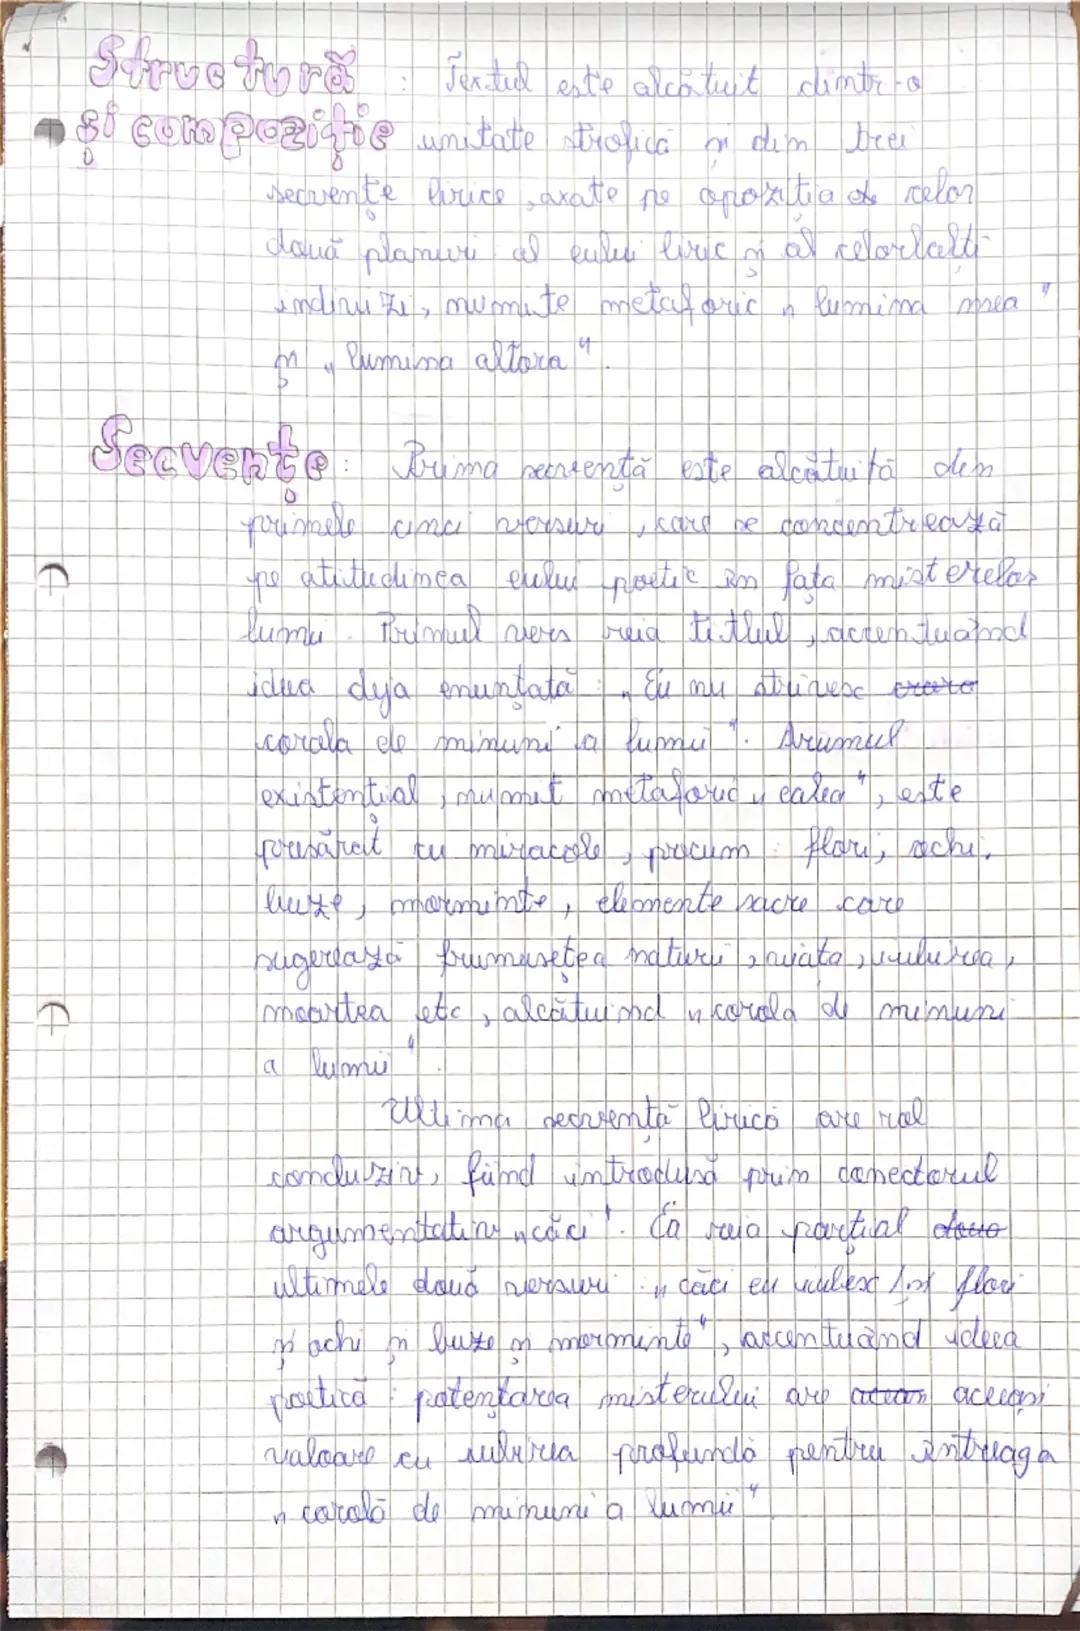 Structură : Textul este alcătuit dintr-o
și compoziție unitate strofică și din trei
secvențe lirice, axate pe opoziția celor
două planuri al eului liric și al celorlalți
indivizi, numite metaforic „lumina mea"
și „lumina altora".
Secvențe: Prima secvență este alcătuită din
primele cinci versuri, care se concentrează
pe atitudinea eului poetic în fața misterelor
lumii. Primul vers reia titlul, accentuând
ideea deja enunțată: „Eu nu strivesc
corola de minuni a lumii". Drumul
existențial, numit metaforic „calea", este
presărat cu miracole, precum: flori, ochi,
buze, morminte, elemente sacre care
sugerează frumusețea naturii, viața, iubirea,
moartea etc, alcătuind „corola de minuni
a lumii".
Ultima secvență lirică are rol
concluziv, fiind introdusă prin conectorul
argumentativ „căci". Ea reia parțial
ultimele două versuri: „căci eu iubesc / și flori
și ochi și buze și morminte", accentuând ideea
poetică: potențarea misterului are aceeași
valoare cu iubirea profundă pentru întreaga
„corolă de minuni a lumii"